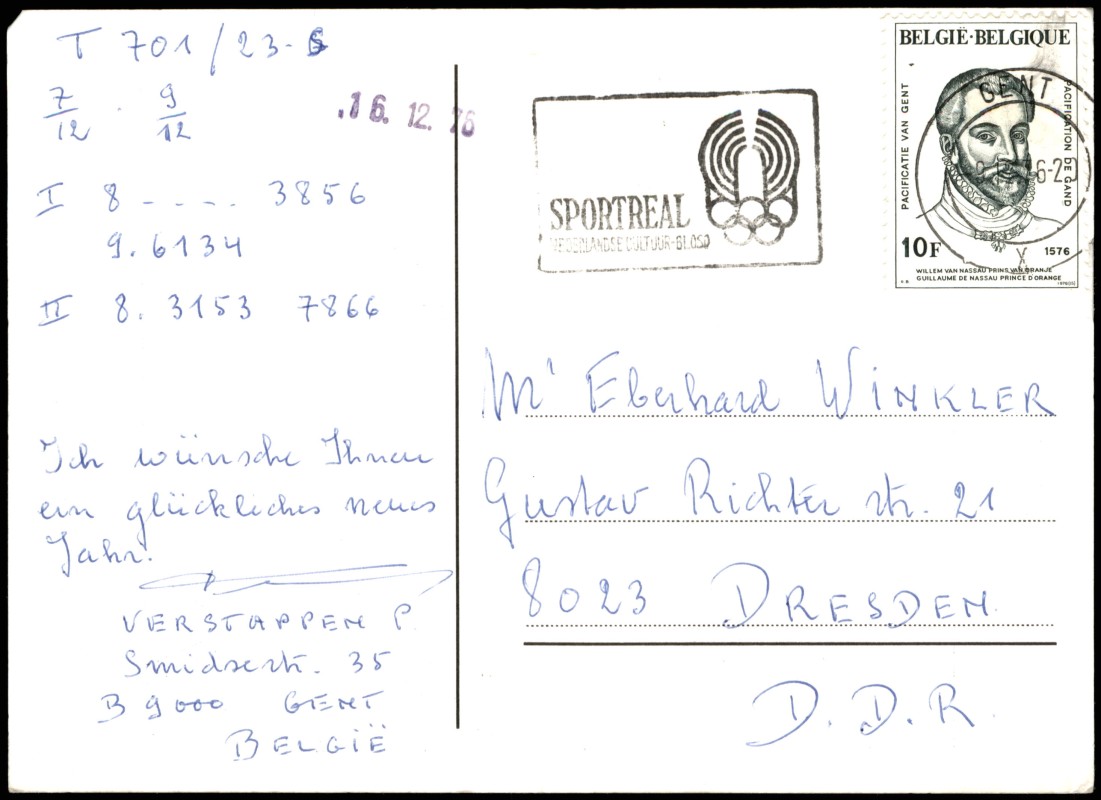 T 701/23-6
7/12 . 9/12
.16. 12. 76
I 8 - - - - 3856
9. 6134
II 8. 3153 7866
Ich wünsche Ihnen
ein glückliches neues
Jahr!
VERSTAPPEN P.
Smidsestr. 35
B 9000 GENT
BELGIË
SPORTREAL
NEDERLANDSE CULTUUR-BLOSO
BELGIË·BELGIQUE
PACIFICATIE VAN GENT
PACIFICATION DE GAND
10F
1576
WILLEM VAN NASSAU PRINS VAN ORANJE
GUILLAUME DE NASSAU PRINCE D'ORANGE
GENT
Mr Eberhard WINKLER
Gustav Richter str. 21
8023 DRESDEN
D.D.R